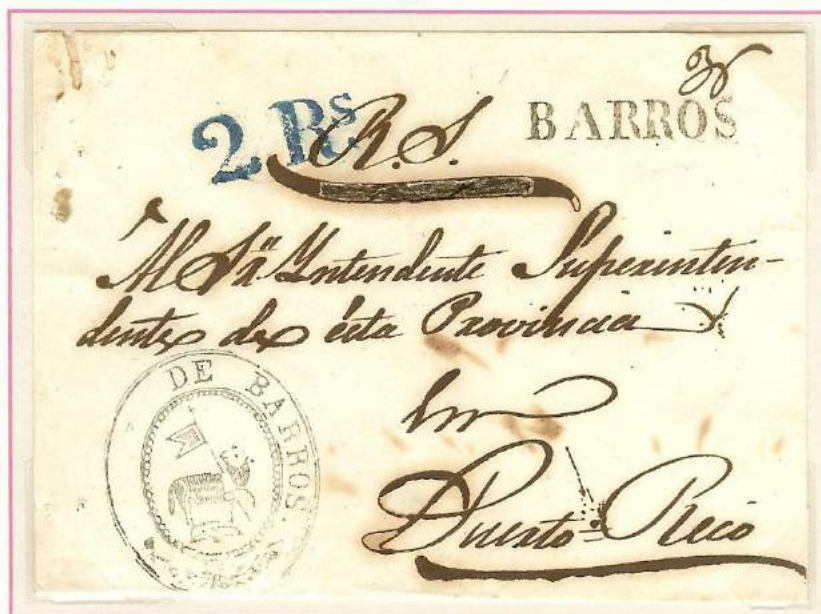 2 Rs
BARROS
R. S.
Al Sr. Yntendente Superinten-
dente de ésta Provincia
En
Puerto-Rico
DE BARROS.